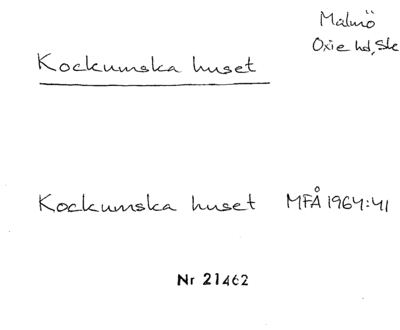 Malmö
Oxie hd, Sk
Kockumska huset
Kockumska huset MFÅ 1964:41
Nr 21462